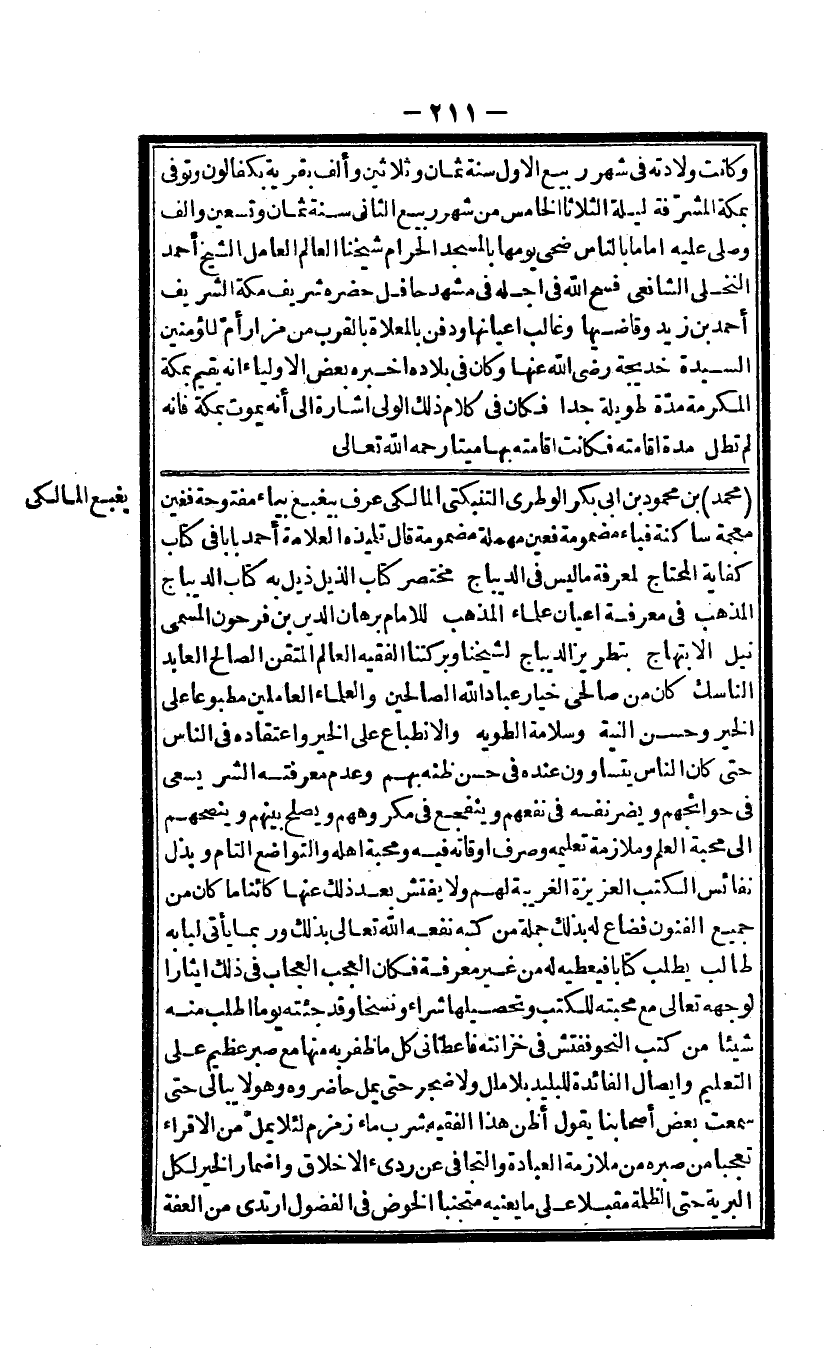 — ٢١١ —
وكانت ولادته فى شهر ربيع الاول سنة ثمان وثلاثين وألف بقرية بكفالون وتوفى
بمكة المشرّفة ليلة الثلاثا الخامس من شهر ربيع الثانى سنة ثمان وتسعين والف
وصلى عليه اماما بالناس ضحى يومها بالمسجد الحرام شيخنا العالم العامل الشيخ أحمد
النخلى الشافعى فسح الله فى اجله فى مشهد حافل حضره شريف مكة الشريف
أحمد بن زيد وقاضيها وغالب اعيانها ودفن بالمعلاة بالقرب من مزار أم المؤمنين
السيدة خديجة رضى الله عنها وكان فى بلاده اخبره بعض الاولياء انه يقيم بمكة
المكرمة مدّة طويلة جدا فكان فى كلام ذلك الولى اشارة الى أنه يموت بمكة فانه
لم تطل مدة اقامته فكانت اقامته بها ميتا رحمه الله تعالى
بغيع المالكى
(محمد) بن محمود بن ابى بكر الوطرى التنبكتى المالكى عرف ببغيع بباء مفتوحة فغين
معجمة ساكنة فياء مضمومة فعين مهملة مضمومة قال تلميذه العلامة أحمد بابا فى كتاب
كفاية المحتاج لمعرفة ماليس فى الديباج مختصر كتاب الذيل ذيل به كتاب الديباج
المذهب فى معرفة اعيان علماء المذهب للامام برهان الدين بن فرحون المسمى
نيل الابتهاج بتطريز الديباج لشيخنا وبركتنا الفقيه العالم المتقن الصالح العابد
الناسك كان من صالحى خيار عباد الله الصالحين والعلماء العاملين مطبوعا على
الخير وحسن النية وسلامة الطويه والانطباع على الخير واعتقاده فى الناس
حتى كان الناس يتساوون عنده فى حسن ظنه بهم وعدم معرفته الشر يسعى
فى حوائجهم ويضر نفسه فى نفعهم ويتفجع فى مكروههم ويصلح بينهم وينصحهم
الى محبة العلم وملازمة تعليمه وصرف اوقاته فيه ومحبة اهله والتواضع التام وبذل
نفائس الكتب العزيزة الغريبة لهم ولا يفتش بعد ذلك عنها كائنا ما كان من
جميع الفنون فضاع له بذلك جملة من كتبه نفعه الله تعالى بذلك وربما يأتى لبابه
طالب يطلب كتابا فيعطيه له من غير معرفة فكان العجب العجاب فى ذلك ايثارا
لوجهه تعالى مع محبته للكتب وتحصيلها شراء ونسخا وقد جئته يوما اطلب منه
شيئا من كتب النحو ففتش فى خزانته فاعطانى كل ما ظفر به منها مع صبر عظيم على
التعليم وايصال الفائدة للبليد بلا ملل ولا ضجر حتى يمل حاضروه وهو لا يبالى حتى
سمعت بعض أصحابنا يقول أظن هذا الفقيه شرب ماء زمزم لئلا يملّ من الاقراء
تعجبا من صبره من ملازمة العبادة والتجافى عن ردىء الاخلاق واضمار الخير لكل
البرية حتى الظلمة مقبلا على ما يعنيه متجنبا الخوض فى الفضول ارتدى من العفة